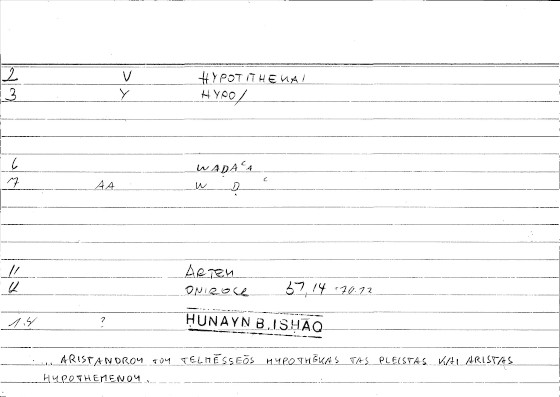 2 V HYPOTITHENAI
3 Y HYPO/
6 WADAʿA
7 AA W Ḍ ʿ
11 ARTEM
12 ONIROCR 57,14
14 ?
ḤUNAYN B. ISḤĀQ
... ARISTANDROY TOY TELMĒSSEŌS HYPOTHĒKAS TAS PLEISTAS KAI ARISTAS
HYPOTHEMENOY.